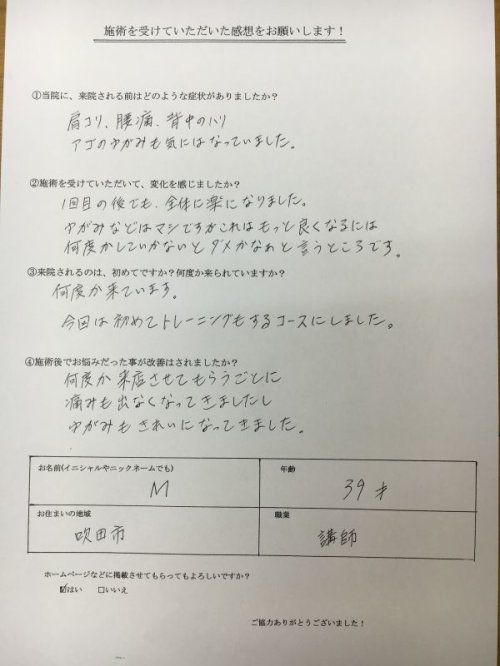 施術を受けていただいた感想をお願いします！
①当院に、来院される前はどのような症状がありましたか？
肩コリ、腰痛、背中のハリ
アゴのゆがみも気にはなっていました。
②施術を受けていただいて、変化を感じましたか？
1回目の後でも、全体に楽になりました。
ゆがみなどはマシですがこれはもっと良くなるには
何度かしていかないとダメかなぁと言うところです。
③来院されるのは、初めてですか？何度か来られていますか？
何度か来ています。
今回は初めてトレーニングもするコースにしました。
④施術後でお悩みだった事が改善はされましたか？
何度か来店させてもらうごとに
痛みも出なくなってきましたし
ゆがみもきれいになってきました。
お名前(イニシャルやニックネームでも)
M
年齢
39才
お住まいの地域
吹田市
職業
講師
ホームページなどに掲載させてもらってもよろしいですか？
☑はい □いいえ
ご協力ありがとうございました！